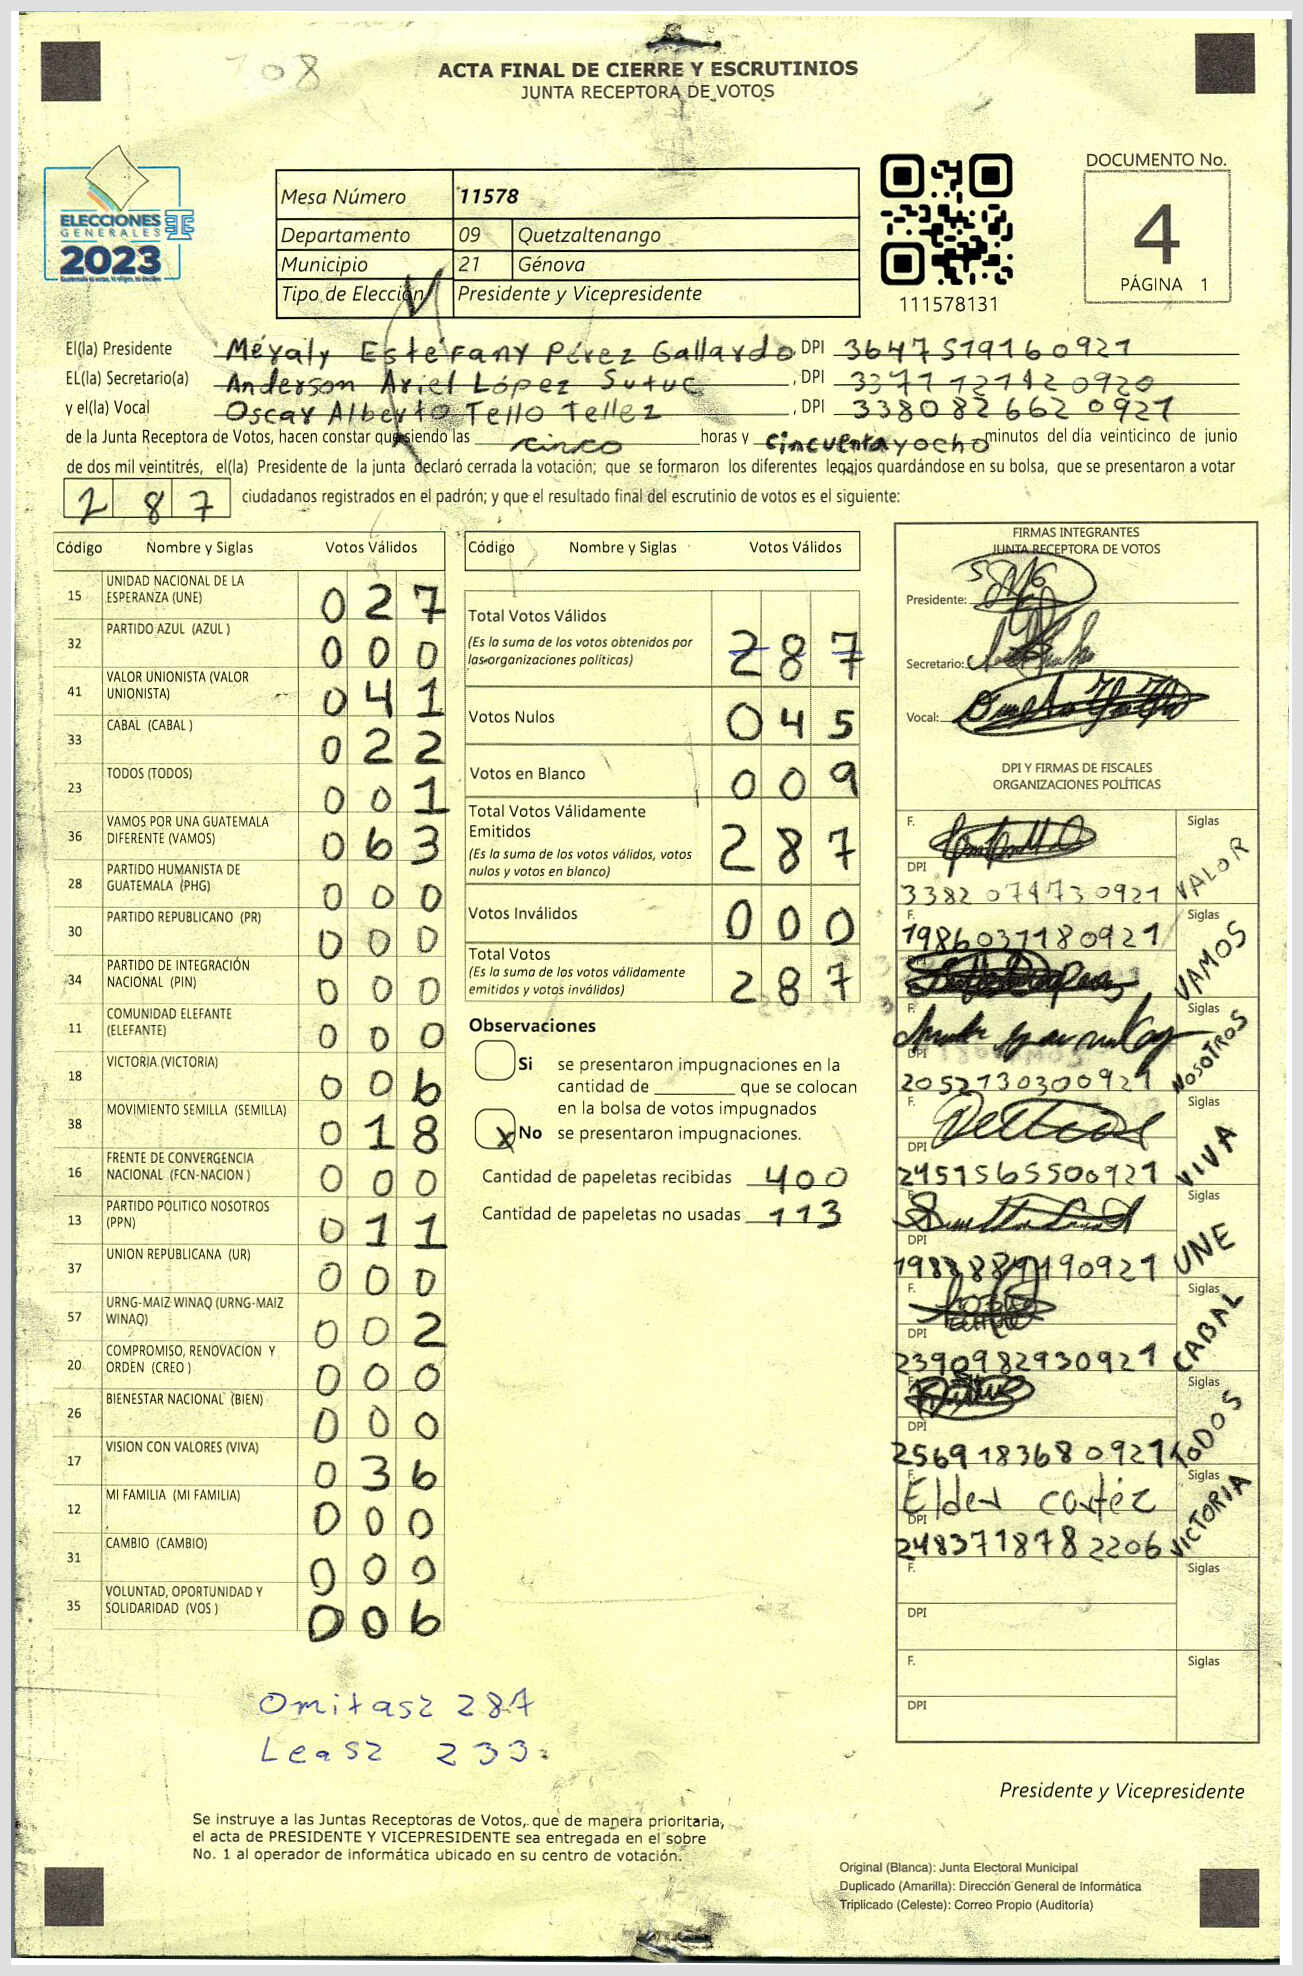 108
ACTA FINAL DE CIERRE Y ESCRUTINIOS
JUNTA RECEPTORA DE VOTOS
ELECCIONES
GENERALES
2023
Mesa Número 11578
Departamento 09 Quetzaltenango
Municipio 21 Génova
Tipo de Elección Presidente y Vicepresidente
111578131
DOCUMENTO No.
4
PÁGINA 1
El(la) Presidente Méyaly Estéfany Pérez Gallardo DPI 3647519160921
EL(la) Secretario(a) Anderson Ariel López Sutuc, DPI 3371121420920
y el(la) Vocal Oscar Alberto Tello Tellez, DPI 3380826620921
de la Junta Receptora de Votos, hacen constar que siendo las cinco horas y cincuenta y ocho minutos del día veinticinco de junio
de dos mil veintitrés, el(la) Presidente de la junta declaró cerrada la votación; que se formaron los diferentes legajos guardándose en su bolsa, que se presentaron a votar
287 ciudadanos registrados en el padrón; y que el resultado final del escrutinio de votos es el siguiente:
Código Nombre y Siglas Votos Válidos
15 UNIDAD NACIONAL DE LA ESPERANZA (UNE) 027
32 PARTIDO AZUL (AZUL ) 000
41 VALOR UNIONISTA (VALOR UNIONISTA) 041
33 CABAL (CABAL ) 022
23 TODOS (TODOS) 001
36 VAMOS POR UNA GUATEMALA DIFERENTE (VAMOS) 063
28 PARTIDO HUMANISTA DE GUATEMALA (PHG) 000
30 PARTIDO REPUBLICANO (PR) 000
34 PARTIDO DE INTEGRACIÓN NACIONAL (PIN) 000
11 COMUNIDAD ELEFANTE (ELEFANTE) 000
18 VICTORIA (VICTORIA) 006
38 MOVIMIENTO SEMILLA (SEMILLA) 018
16 FRENTE DE CONVERGENCIA NACIONAL (FCN-NACION ) 000
13 PARTIDO POLITICO NOSOTROS (PPN) 011
37 UNION REPUBLICANA (UR) 000
57 URNG-MAIZ WINAQ (URNG-MAIZ WINAQ) 002
20 COMPROMISO, RENOVACION Y ORDEN (CREO ) 000
26 BIENESTAR NACIONAL (BIEN) 000
17 VISION CON VALORES (VIVA) 036
12 MI FAMILIA (MI FAMILIA) 000
31 CAMBIO (CAMBIO) 000
35 VOLUNTAD, OPORTUNIDAD Y SOLIDARIDAD (VOS ) 006
Código Nombre y Siglas Votos Válidos
Total Votos Válidos 287
(Es la suma de los votos obtenidos por
las organizaciones políticas)
Votos Nulos 045
Votos en Blanco 009
Total Votos Válidamente
Emitidos 287
(Es la suma de los votos válidos, votos
nulos y votos en blanco)
Votos Inválidos 000
Total Votos 287
(Es la suma de los votos válidamente
emitidos y votos inválidos)
Observaciones
Si se presentaron impugnaciones en la
cantidad de ________ que se colocan
en la bolsa de votos impugnados
X No se presentaron impugnaciones.
Cantidad de papeletas recibidas 400
Cantidad de papeletas no usadas 113
FIRMAS INTEGRANTES
JUNTA RECEPTORA DE VOTOS
Presidente:
Secretario:
Vocal:
DPI Y FIRMAS DE FISCALES
ORGANIZACIONES POLÍTICAS
F. Siglas VALOR
DPI 3382074730921
F. Siglas VAMOS
1986031180921
DPI
F. Siglas NOSOTROS
DPI 2052130300921
F. Siglas VIVA
DPI 2451565500921
F. Siglas UNE
DPI
F. Siglas CABAL
DPI 2390982930921
F. Siglas TODOS
DPI 2569183680921
F. Elder cortéz Siglas VICTORIA
DPI 2483718782206
F. Siglas
DPI
F. Siglas
DPI
Omitasz 287
Leasz 233
Presidente y Vicepresidente
Se instruye a las Juntas Receptoras de Votos, que de manera prioritaria,
el acta de PRESIDENTE Y VICEPRESIDENTE sea entregada en el sobre
No. 1 al operador de informática ubicado en su centro de votación.
Original (Blanca): Junta Electoral Municipal
Duplicado (Amarilla): Dirección General de Informática
Triplicado (Celeste): Correo Propio (Auditoría)